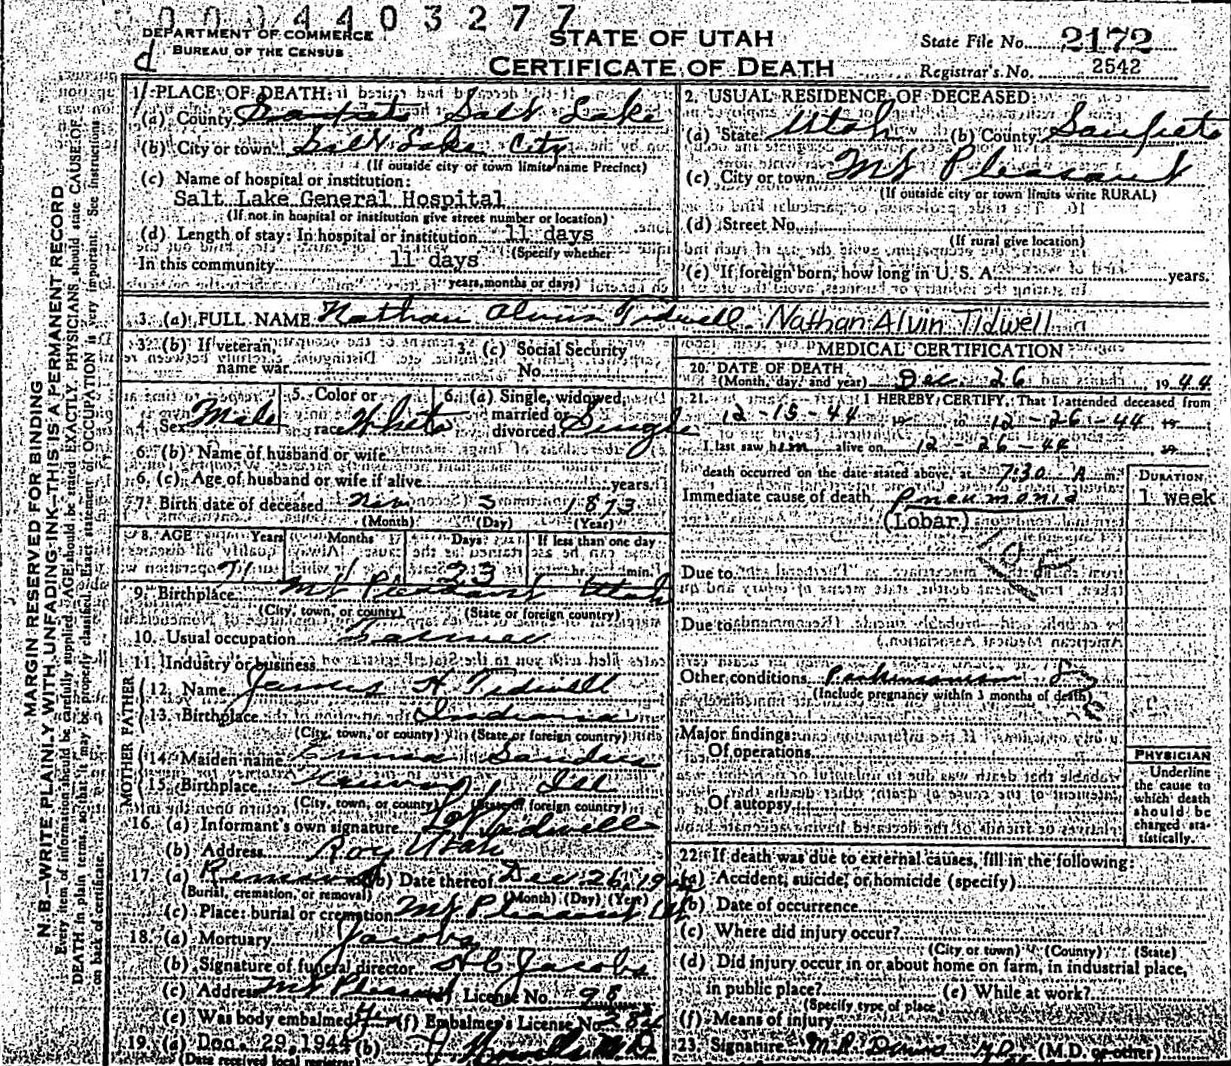 0004403277
DEPARTMENT OF COMMERCE
BUREAU OF THE CENSUS
d
STATE OF UTAH
CERTIFICATE OF DEATH
State File No. 2172
Registrar's No. 2542
MARGIN RESERVED FOR BINDING
N. B.—WRITE PLAINLY WITH UNFADING INK—THIS IS A PERMANENT RECORD
Every item of information should be carefully supplied. AGE should be stated EXACTLY. PHYSICIANS should state CAUSE OF
DEATH in plain terms, so that it may be properly classified. Exact statement of OCCUPATION is very important. See instructions
on back of certificate.
1. PLACE OF DEATH:
(a) County Sanpete Salt Lake
(b) City or town Salt Lake City
(If outside city or town limits name Precinct)
(c) Name of hospital or institution:
Salt Lake General Hospital
(If not in hospital or institution give street number or location)
(d) Length of stay: In hospital or institution 11 days
(Specify whether
In this community 11 days
years, months or days)
2. USUAL RESIDENCE OF DECEASED:
(a) State Utah (b) County Sanpete
(c) City or town Mt Pleasant
(If outside city or town limits write RURAL)
(d) Street No.
(If rural give location)
(e) If foreign born, how long in U. S. A. years.
3. (a) FULL NAME Nathan Alvin Tidwell Nathan Alvin Tidwell
3. (b) If veteran name war
3. (c) Social Security No.
4. Sex Male
5. Color or race White
6. (a) Single, widowed, married or divorced Single
6. (b) Name of husband or wife
6. (c) Age of husband or wife if alive years.
7. Birth date of deceased Nov 3 1873
(Month) (Day) (Year)
8. AGE Years Months Days If less than one day
71 1 23 hr. min.
9. Birthplace Mt Pleasant Utah
(City, town, or county) (State or foreign country)
10. Usual occupation Farmer
11. Industry or business
FATHER
12. Name James H. Tidwell
13. Birthplace Indiana
(City, town, or county) (State or foreign country)
MOTHER
14. Maiden name Emma Sanders
15. Birthplace Ill
(City, town, or county) (State or foreign country)
16. (a) Informant's own signature Tidwell
(b) Address Roy Utah
17. (a) Removal (b) Date thereof Dec 26, 1944
(Burial, cremation, or removal) (Month) (Day) (Year)
(c) Place: burial or cremation Mt Pleasant
18. (a) Mortuary Jacobs
(b) Signature of funeral director H C Jacobs
(c) Address Mt Pleasant License No. 98
(e) Was body embalmed Yes (f) Embalmer's License No.
19. (a) Dec. 29 1944 (b) M.D.
(Date received local registrar)
MEDICAL CERTIFICATION
20. DATE OF DEATH
(Month, day, and year) Dec. 26 1944
21. I HEREBY CERTIFY, That I attended deceased from
12-15-44 19 to 12-26-44 19
I last saw him alive on 12-26-44 19
death occurred on the date stated above, at 7:30 A m.
DURATION
Immediate cause of death Pneumonia 1 week
(Lobar)
108
Due to
Due to
Other conditions Parkinsonism
(Include pregnancy within 3 months of death)
Major findings:
Of operations
Of autopsy
PHYSICIAN
Underline
the cause to
which death
should be
charged sta-
tistically.
22. If death was due to external causes, fill in the following:
(a) Accident, suicide, or homicide (specify)
(b) Date of occurrence
(c) Where did injury occur?
(City or town) (County) (State)
(d) Did injury occur in or about home on farm, in industrial place,
in public place? (e) While at work?
(Specify type of place)
(f) Means of injury
23. Signature M.D. (M.D. or other)